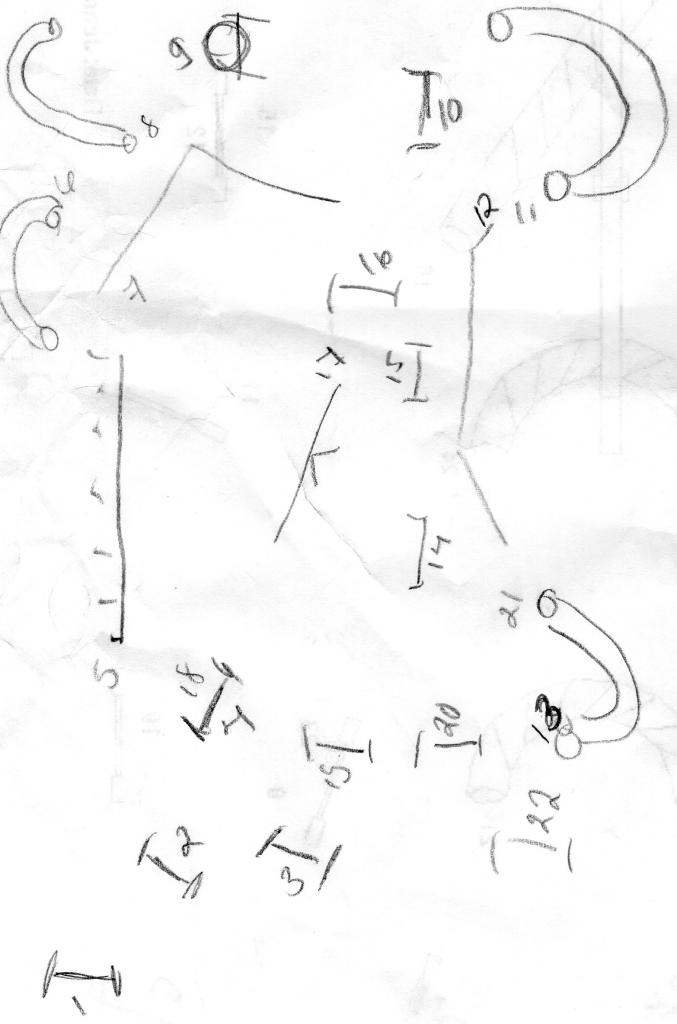 8
9
10
6
7
12
11
16
17
15
14
21
5
18
4
13
20
19
2
3
22
1